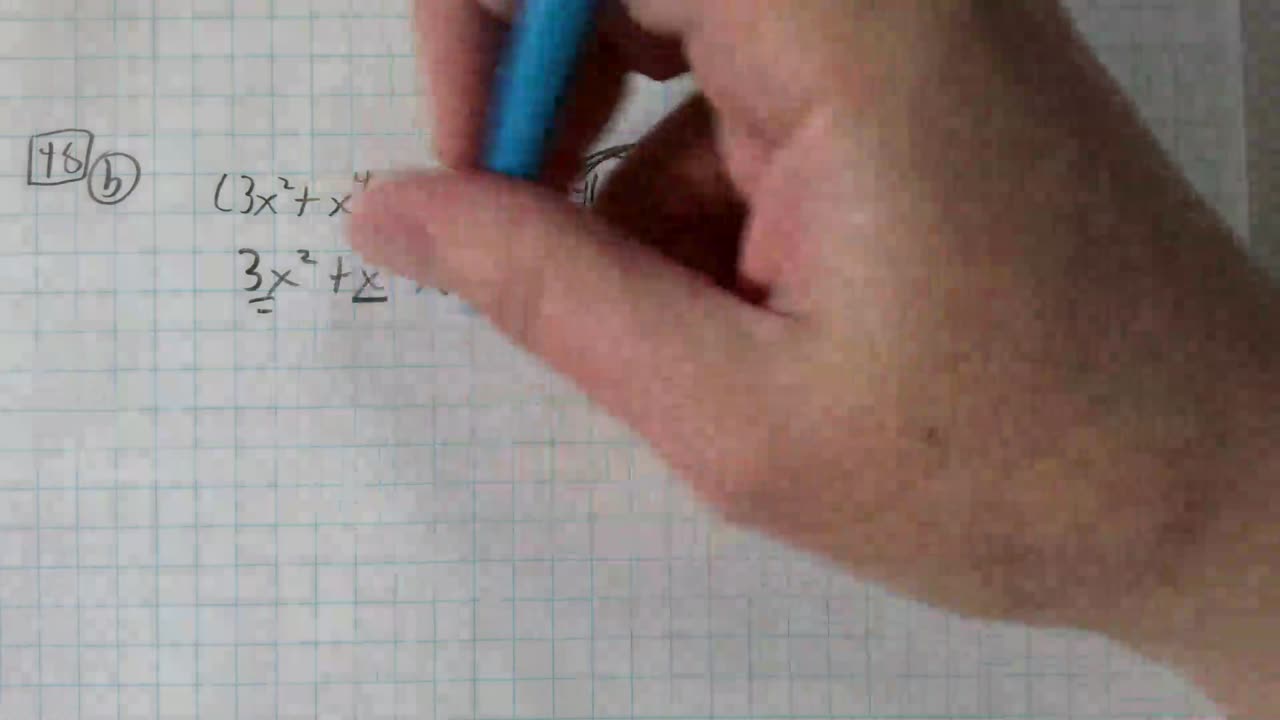 48 b (3x² + x⁴
3x² + x